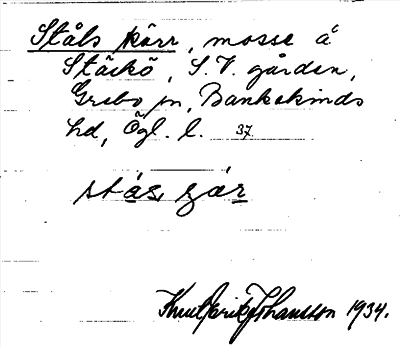 Ståls kärr, mosse å
Stäckö, S. V. gården,
Grebo sn, Bankekinds
hd, Ögl. l. 37
stás, çár
Knut Erik Johansson 1934.